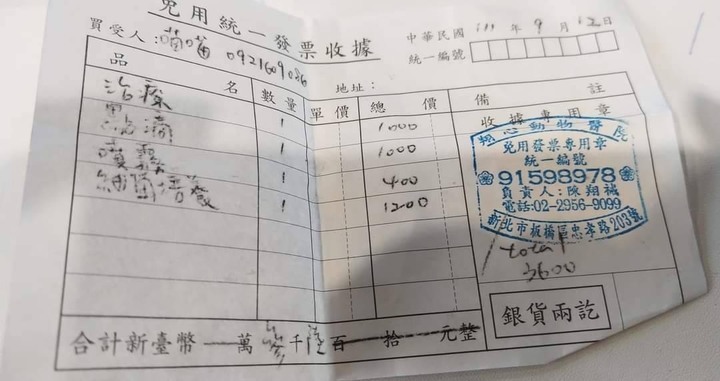 免用統一發票收據
買受人：喵喵 0921609086
中華民國 111 年 9 月 12 日
統一編號
地址：
品名 數量 單價 總價 備註
治療 1 1000
點滴 1 1000
噴霧 1 400
細菌培養 1 1200
收據專用章
翔心動物醫院
免用發票專用章
統一編號
91598978
負責人：陳翔
電話:02-2956-9099
新北市板橋區忠孝路203號
total
3600
合計新臺幣 萬 參千陸百 拾 元整
銀貨兩訖